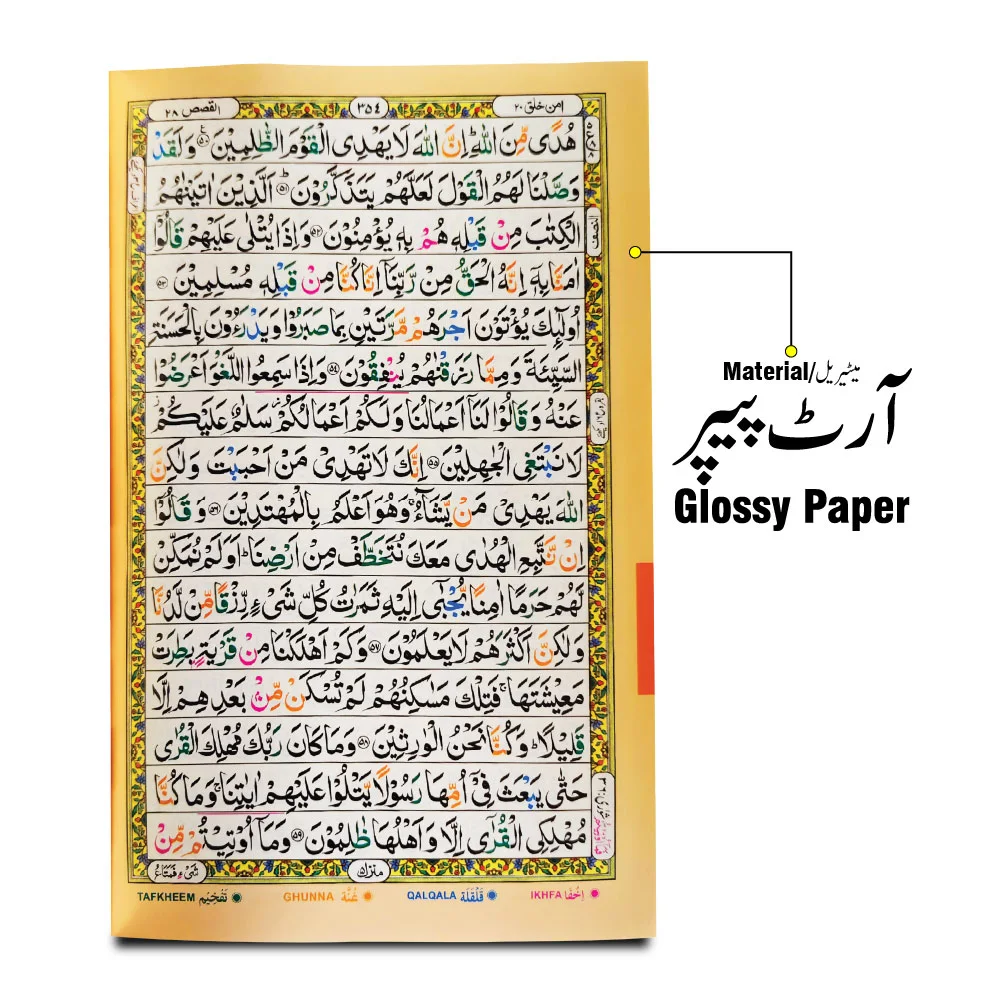 امن خلق ۲۰
۳۵٤
القصص ۲۸
هُدًى مِّنَ اللّٰهِ ؕ اِنَّ اللّٰهَ لَا يَهْدِى الْقَوْمَ الظّٰلِمِيْنَ ۵۰ وَلَقَدْ
وَصَّلْنَا لَهُمُ الْقَوْلَ لَعَلَّهُمْ يَتَذَكَّرُوْنَ ؕ ۵۱ اَلَّذِيْنَ اٰتَيْنٰهُمُ
الْكِتٰبَ مِنْ قَبْلِهٖ هُمْ بِهٖ يُؤْمِنُوْنَ ۵۲ وَاِذَا يُتْلٰى عَلَيْهِمْ قَالُوْۤا
النصف
اٰمَنَّا بِهٖۤ اِنَّهُ الْحَقُّ مِنْ رَّبِّنَاۤ اِنَّا كُنَّا مِنْ قَبْلِهٖ مُسْلِمِيْنَ ۵۳
اُولٰٓئِكَ يُؤْتَوْنَ اَجْرَهُمْ مَّرَّتَيْنِ بِمَا صَبَرُوْا وَيَدْرَءُوْنَ بِالْحَسَنَةِ
السَّيِّئَةَ وَمِمَّا رَزَقْنٰهُمْ يُنْفِقُوْنَ ۵۴ وَاِذَا سَمِعُوا اللَّغْوَ اَعْرَضُوْا
عَنْهُ وَقَالُوْا لَنَاۤ اَعْمَالُنَا وَلَكُمْ اَعْمَالُكُمْ سَلٰمٌ عَلَيْكُمْ
لَا نَبْتَغِى الْجٰهِلِيْنَ ۵۵ اِنَّكَ لَا تَهْدِىْ مَنْ اَحْبَبْتَ وَلٰكِنَّ
اللّٰهَ يَهْدِىْ مَنْ يَّشَآءُ ۚ وَهُوَ اَعْلَمُ بِالْمُهْتَدِيْنَ ۵۶ وَقَالُوْۤا
اِنْ نَّتَّبِعِ الْهُدٰى مَعَكَ نُتَخَطَّفْ مِنْ اَرْضِنَا ؕ اَوَلَمْ نُمَكِّنْ
لَّهُمْ حَرَمًا اٰمِنًا يُّجْبٰۤى اِلَيْهِ ثَمَرٰتُ كُلِّ شَىْءٍ رِّزْقًا مِّنْ لَّدُنَّا
وَلٰكِنَّ اَكْثَرَهُمْ لَا يَعْلَمُوْنَ ۵۷ وَكَمْ اَهْلَكْنَا مِنْ قَرْيَةٍۭ بَطِرَتْ
مَعِيْشَتَهَا ۚ فَتِلْكَ مَسٰكِنُهُمْ لَمْ تُسْكَنْ مِّنْۢ بَعْدِهِمْ اِلَّا
قَلِيْلًا ؕ وَكُنَّا نَحْنُ الْوٰرِثِيْنَ ۵۸ وَمَا كَانَ رَبُّكَ مُهْلِكَ الْقُرٰى
حَتّٰى يَبْعَثَ فِىْۤ اُمِّهَا رَسُوْلًا يَّتْلُوْا عَلَيْهِمْ اٰيٰتِنَا ۚ وَمَا كُنَّا
مُهْلِكِى الْقُرٰٓى اِلَّا وَاَهْلُهَا ظٰلِمُوْنَ ۵۹ وَمَاۤ اُوْتِيْتُمْ مِّنْ
منزل ۵
شَىْءٍ فَمَتَاعُ
IKHFA اِخْفَا
QALQALA قَلْقَلَة
GHUNNA غُنَّه
TAFKHEEM تَفْخِيْم
Material/میٹیریل
آرٹ پیپر
Glossy Paper